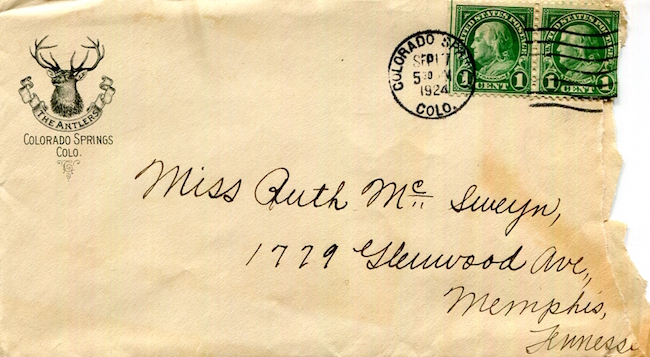 THE ANTLERS
COLORADO SPRINGS
COLO.
COLORADO SPRI
SEP 17
5 30
1924
COLO.
UNITED STATES POSTAGE
1 CENT 1
1 CENT 1
Miss Ruth Mc Sweyn,
1779 Glenwood Ave,
Memphis,
Tennesse